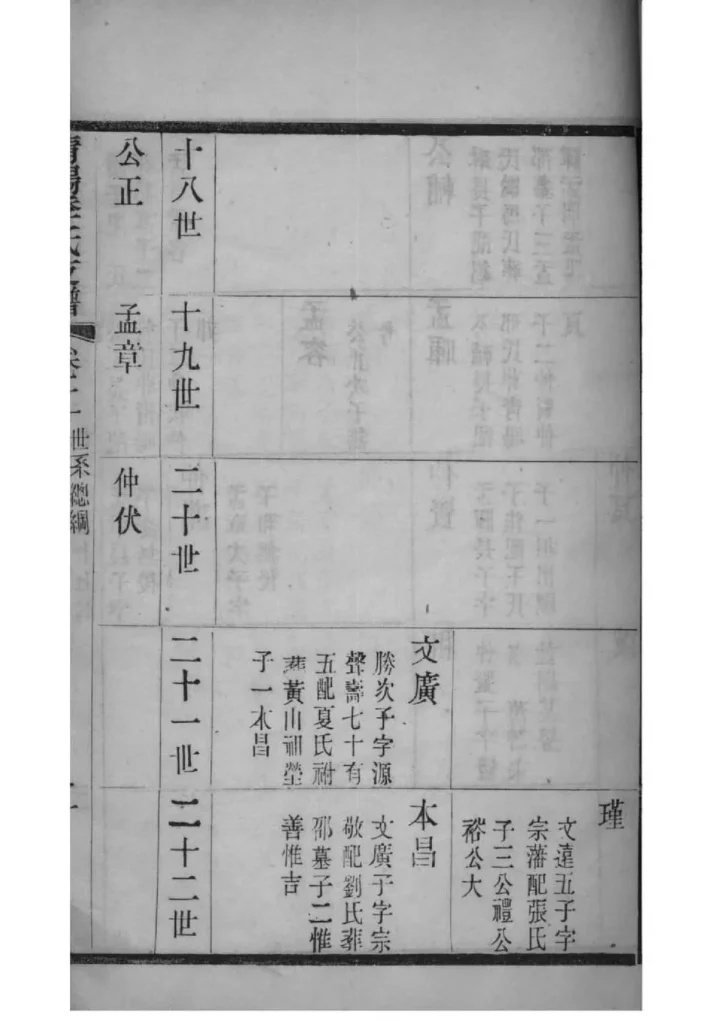 瑾
文遠五子字
宗藩配張氏
子三公禮公
裕公大
文廣
勝次子字源
聲壽七十有
五配夏氏祔
葬黃山祖塋
子一本昌
本昌
文廣子字宗
敬配劉氏葬
邵墓子二惟
善惟吉
十八世
十九世
二十世
二十一世
二十二世
公正
孟章
仲伏
氏支譜
世系總綱